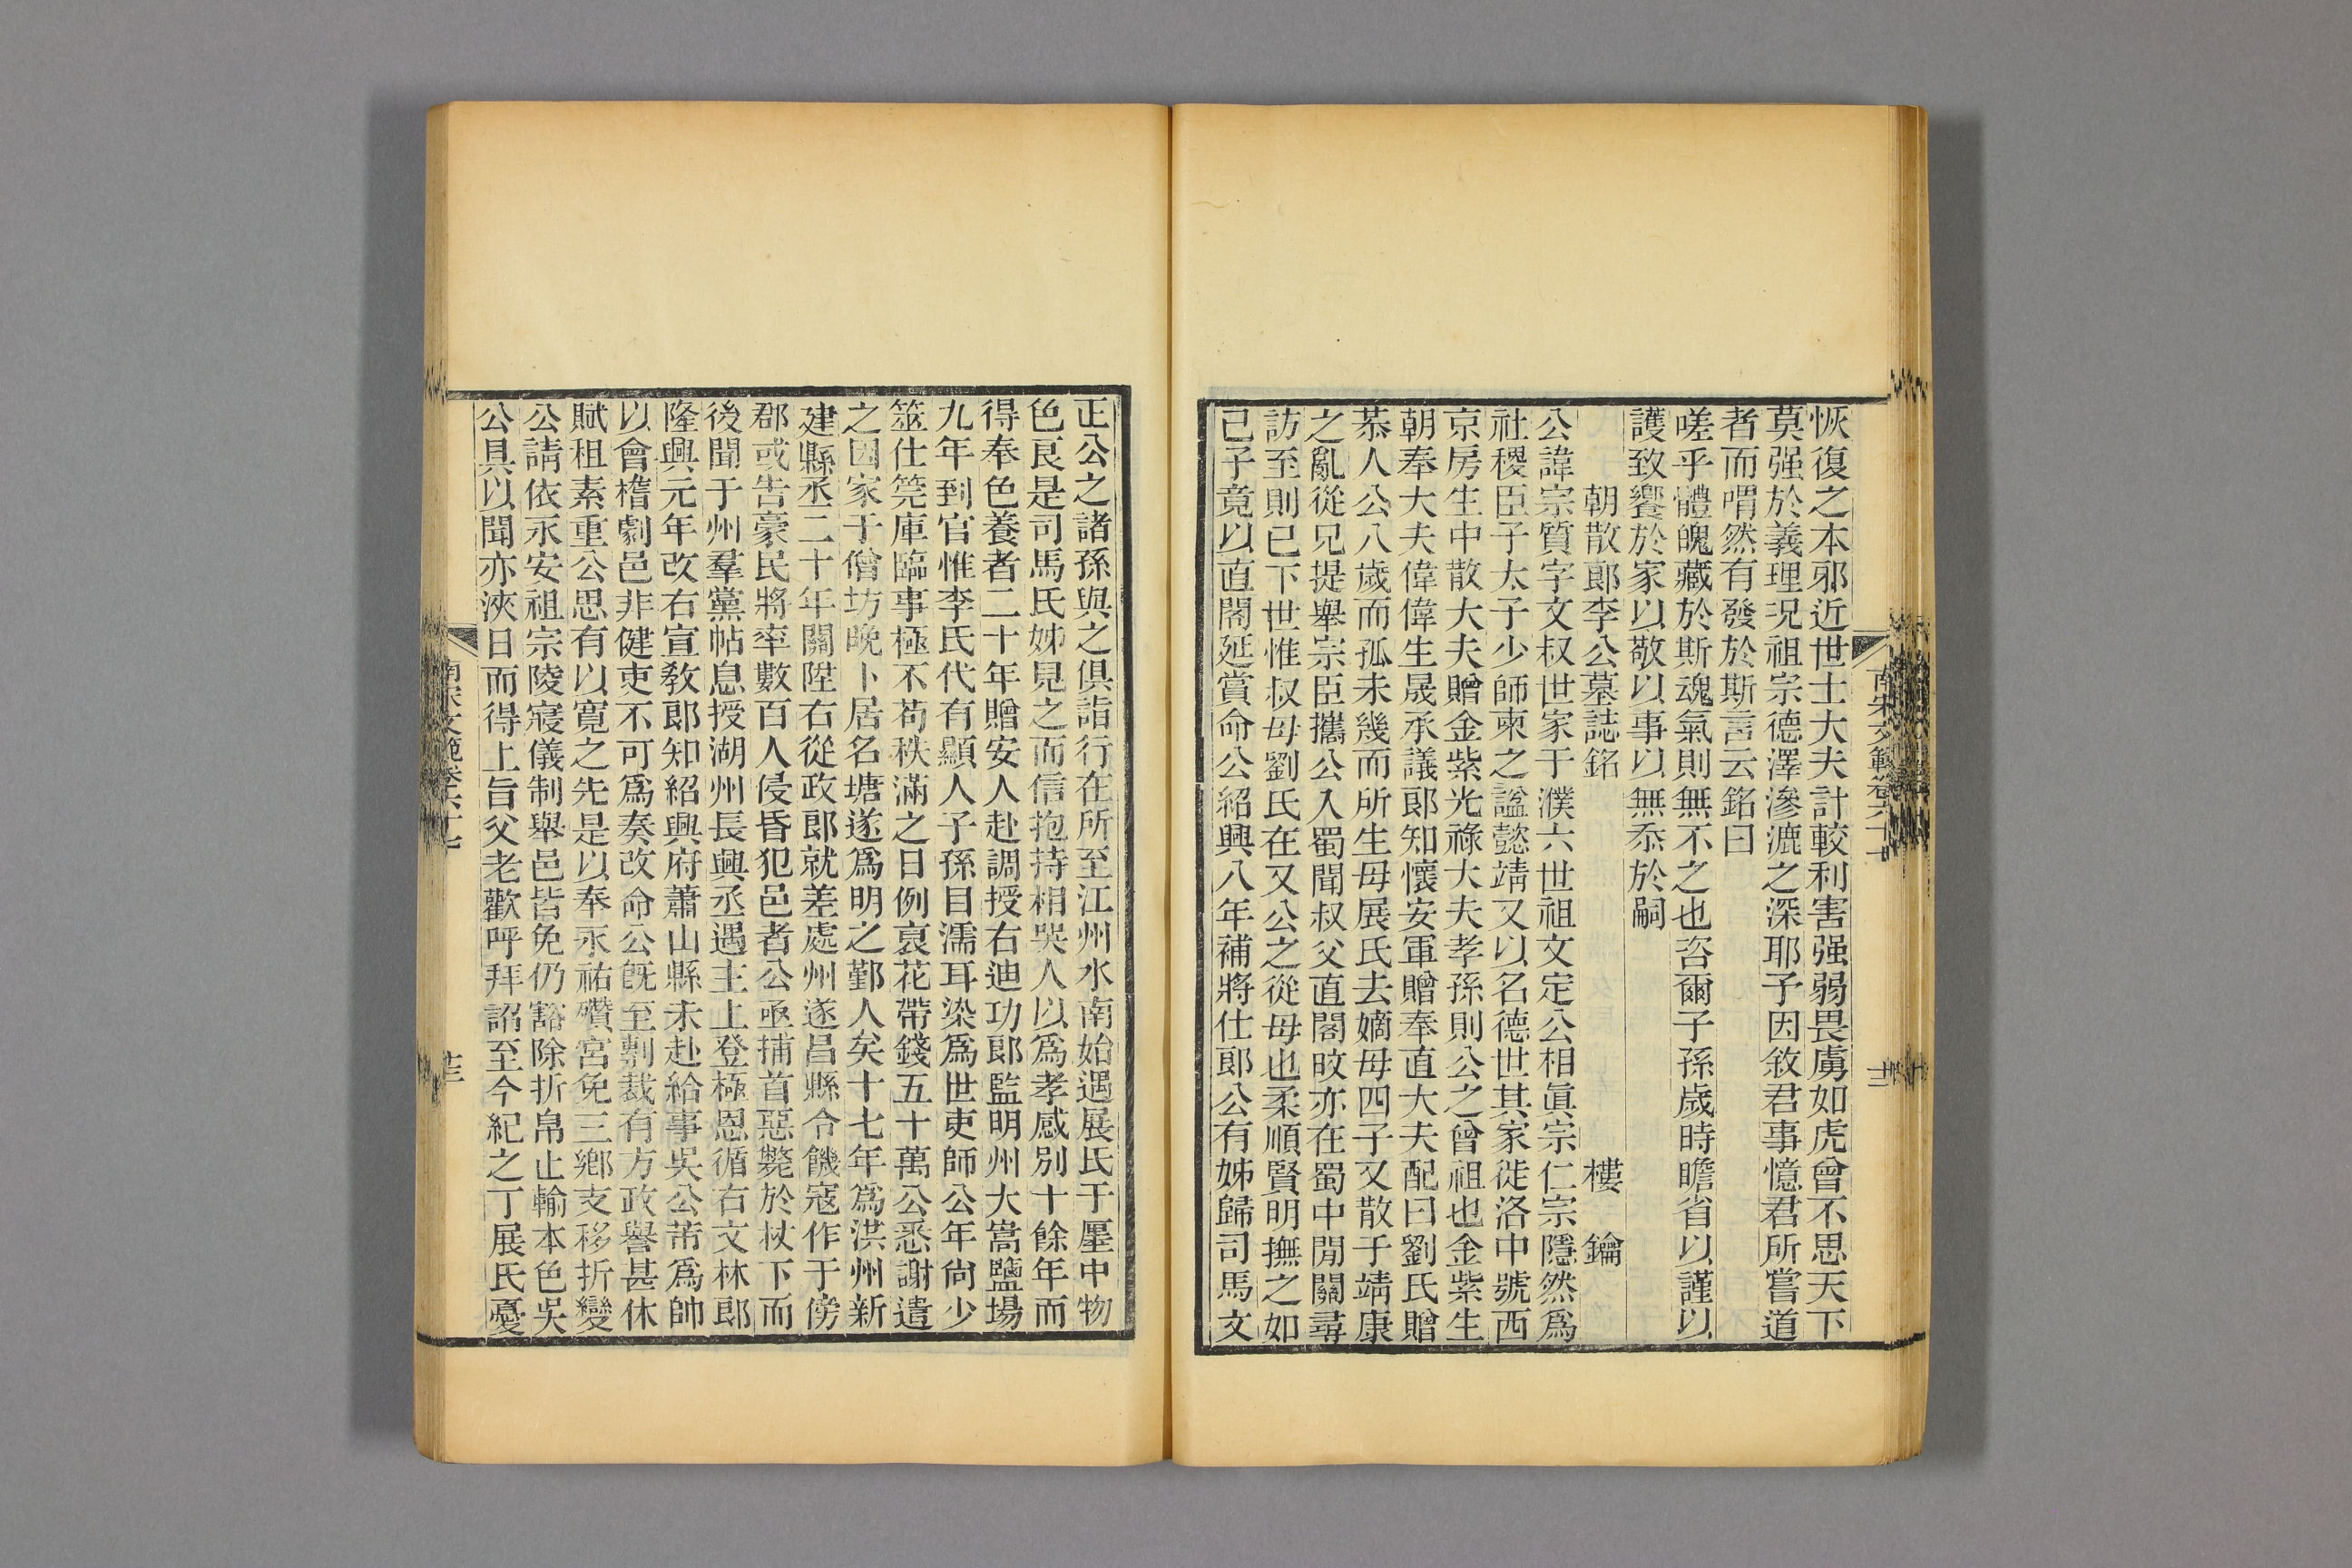 恢復之本邪近世士大夫計較利害强弱畏虜如虎曾不思天下
莫强於義理況祖宗德澤滲漉之深耶予因敘君事憶君所嘗道
者而喟然有發於斯言云銘曰
嗟乎體魄藏於斯魂氣則無不之也咨爾子孫歲時瞻省以謹以
護致饗於家以敬以事以無忝於嗣
朝散郎李公墓誌銘 樓鑰
公諱宗質字文叔世家于濮六世祖文定公相眞宗仁宗隱然爲
社稷臣子太子少師柬之諡懿靖又以名德世其家徙洛中號西
京房生中散大夫贈金紫光祿大夫孝孫則公之曾祖也金紫生
朝奉大夫偉偉生晟承議郎知懷安軍贈奉直大夫配曰劉氏贈
恭人公八歲而孤未幾而所生母展氏去嫡母四子又散于靖康
之亂從兄提舉宗臣攜公入蜀聞叔父直閣旼亦在蜀中閒關尋
訪至則已下世惟叔母劉氏在又公之從母也柔順賢明撫之如
己子竟以直閣延賞命公紹興八年補將仕郎公有姊歸司馬文
正公之諸孫與之俱詣行在所至江州水南始遇展氏于廛中物
色良是司馬氏姊見之而信抱持相哭人以爲孝感別十餘年而
得奉色養者二十年贈安人赴調授右迪功郎監明州大嵩鹽場
九年到官惟李氏代有顯人子孫目濡耳染爲世吏師公年尙少
筮仕筦庫臨事極不苟秩滿之日例裒花帶錢五十萬公悉謝遣
之因家于僧坊晚卜居名塘遂爲明之鄞人矣十七年爲洪州新
建縣丞二十年關陞右從政郎就差處州遂昌縣令饑寇作于傍
郡或告豪民將率數百人侵昏犯邑者公亟捕首惡斃於杖下而
後聞于州羣黨帖息授湖州長興丞遇主上登極恩循右文林郎
隆興元年改右宣敎郎知紹興府蕭山縣未赴給事吳公芾爲帥
以會稽劇邑非健吏不可爲奏改命公旣至剸裁有方政譽甚休
賦租素重公思有以寬之先是以奉永祐欑宮免三鄕支移折變
公請依永安祖宗陵寢儀制舉邑皆免仍豁除折帛止輸本色吳
公具以聞亦浹日而得上旨父老歡呼拜詔至今紀之丁展氏憂
南宋文範卷六十七
十三